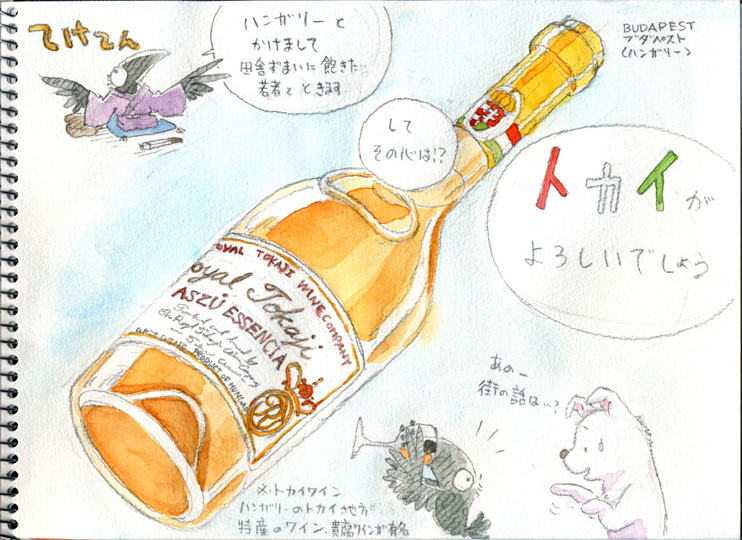 てけてん
ハンガリーと
かけまして
田舎ずまいに飽きた
若者と ときます
BUDAPEST
ブダペスト
(ハンガリー)
して
その心は!?
トカイが
よろしいでしょう
ROYAL TOKAJI WINE COMPANY
Royal Tokaji
ASZÚ ESSENCIA
PRODUCT OF HUNGARY
あのー
街の話は…?
※・トカイワイン
ハンガリーのトカイ地方
特産のワイン、貴腐ワインが有名